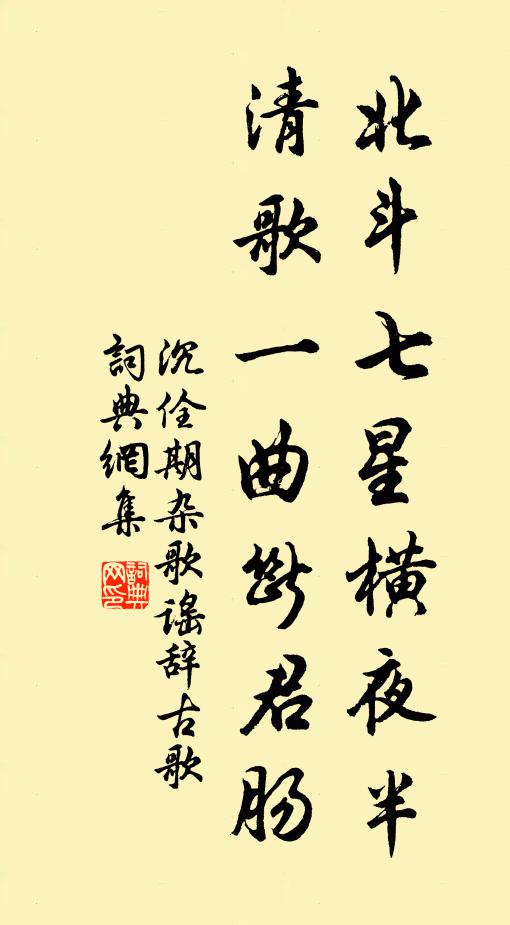 北斗七星橫夜半
清歌一曲斷君腸
沉佺期杂歌謠辞古歌
詞典網集
詞典网印